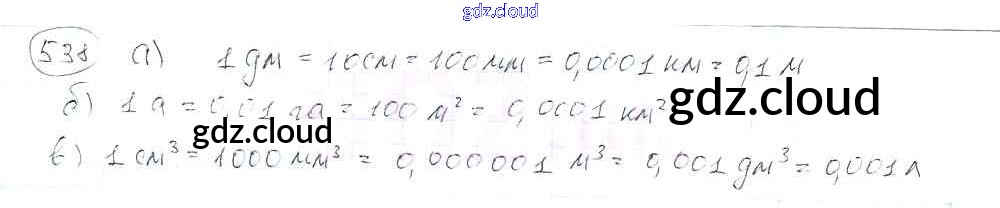 gdz.cloud
538 а) 1 дм = 10 см = 100 мм = 0,0001 км = 0,1 м
б) 1 а = 0,01 га = 100 м² = 0,0001 км²
gdz.cloud
gdz.cloud
в) 1 см³ = 1000 мм³ = 0,000001 м³ = 0,001 дм³ = 0,001 л